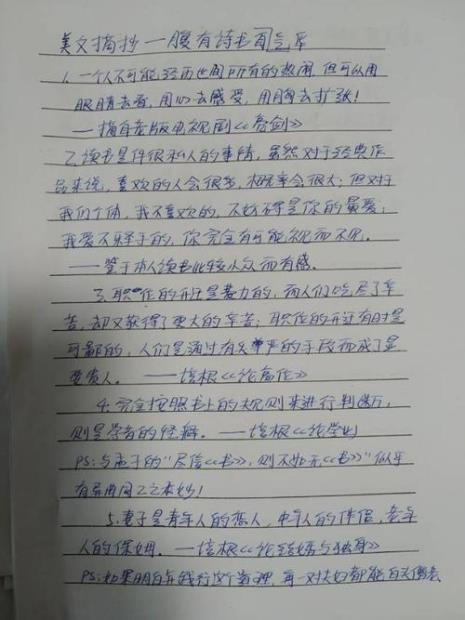 美文摘抄—腹有诗书自气华
1.一个人不可能经历世间所有的热闹,但可以用
眼睛去看,用心去感受,用胸去扩张!
—摘自老版电视剧《亮剑》
2.读书是件很私人的事情,虽然对于经典作
品来说,喜欢的人会很多,概率会很大;但对于
我们个体,我不喜欢的,不妨碍是你的最爱;
我爱不释手的,你完全有可能视而不见。
——鉴于本人读书比较小众而有感。
3.职位的升迁是费力的,而人们吃尽了辛
苦,却又获得了更大的辛苦;职位的升迁有时是
可鄙的,人们是通过有失尊严的手段而成了显
要贵人。 ——培根《论高位》
4.完全按照书上的规则来进行判断,
则是学者的怪癖。——培根《论学业》
PS:与孟子的"尽信《书》,则不如无《书》"似乎
有异曲同工之本妙!
5.妻子是青年人的恋人,中年人的伴侣,老年
人的保姆。——培根《论结婚与独身》
PS:如果明白并践行这个道理,每一对夫妇都能白头偕老